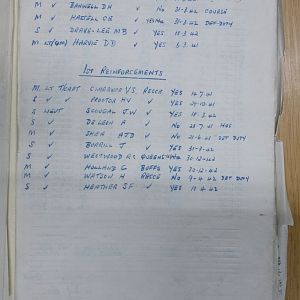 M ✓ BANWELL D H ✓ NO 31-3-42 COURSE
M ✓ HASTELL CE ✓ 31-3-42 DET DUTY
S ✓ DRAKE-LEE MB ✓ YES 18-3-42
M LT(QM) HARVIE D B ✓ YES 6.3.41
1ST REINFORCEMENTS
M LT V.S. RECCE YES 16.7.41
S ✓ ✓ PROCTOR HV ✓ YES 27-10-41
S ✓ SCOUGAL J.W ✓ YES 18-3-42
S ✓ DE LEON A ✓ NO 25.7.41
M ✓ SHEA AJD ✓ NO 21-6-41 DET DUTY
S ✓ BURRILL T ✓ YES 31-3-42
S ✓ WESTWOOD RC QUEENS 30-12-42
M ✓ HOLLAND G BUFFS YES 30-12-42
M ✓ WATSON H RECCE NO 9-4-42 DET DUTY
S ✓ HEATHER SF ✓ YES 18 4 42